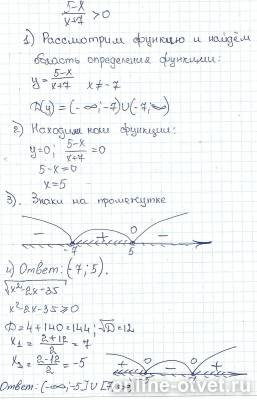 5-x/x+7 >0
1) Рассмотрим функцию и найдём
область определения функции:
y= 5-x/x+7 x≠-7
D(y)=(-∞;-7)∪(-7;∞)
2) Находим нули функции:
y=0; 5-x/x+7 =0
5-x=0
x=5
3). Знаки на промежутке
- + 0 -
-7 5
4) Ответ: (-7;5).
√x²-2x-35
x²-2x-35≥0
D=4+140=144; √D=12
x₁= 2+12/2 =7
x₂= 2-12/2 =-5
+ 0 - 0 +
-5 7
Ответ: (-∞;-5]∪[7;+∞)
online-otvet.ru